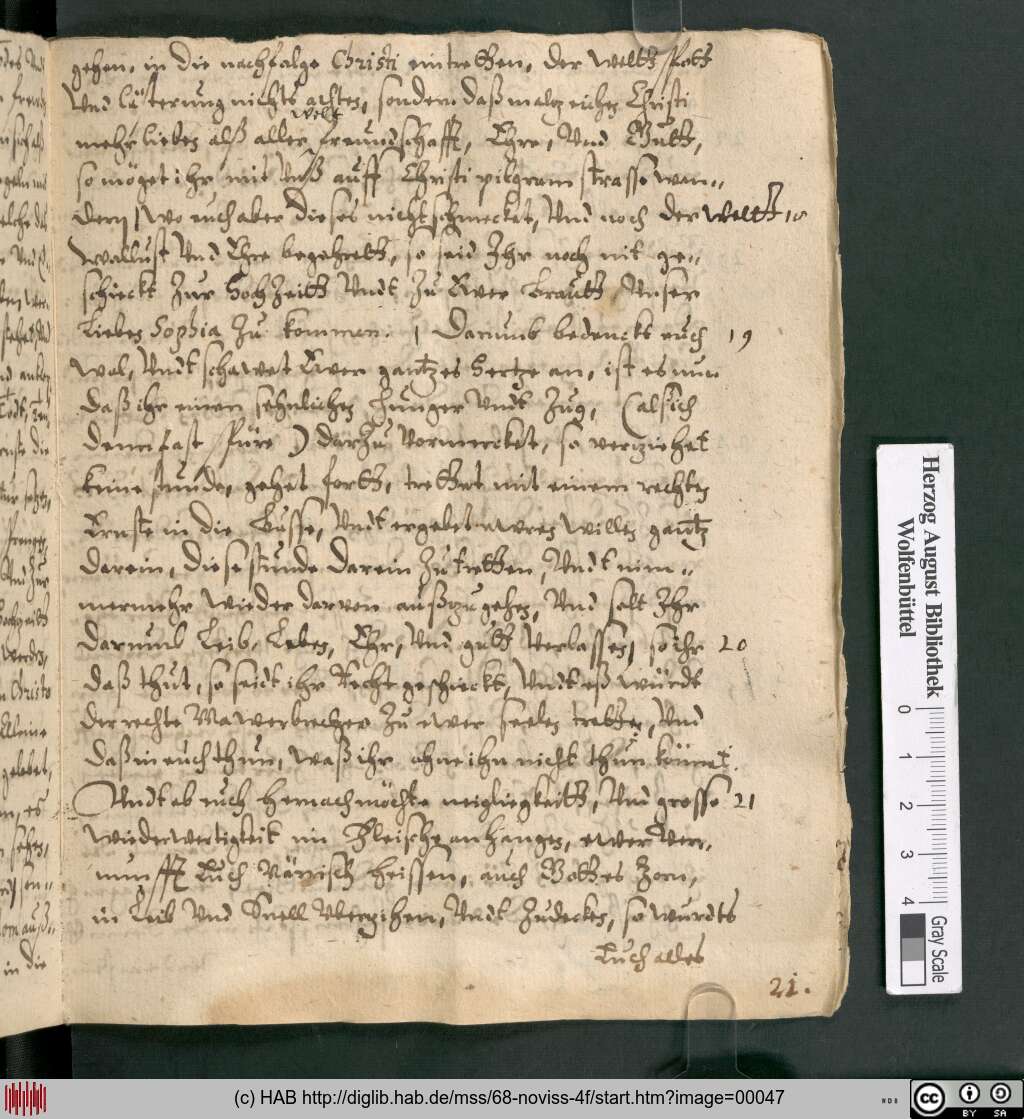 gehen, in die nachfolge Christi eintretten, der weltt spott
Vnd lästerung nichts achten, sondern daß malzeichen Christi
welt
mehr lieben alß aller freundschafft, Ehre, Vnd Gutt,
so möget ihr mit Vnß auff Christi pilgram strasse wan-
dern, wo euch aber dieses nicht schmecket, Vnd noch der weltt 18
wollust Vnd Ehre begehrett, so seid Ihr noch nit ge-
schickt Zur HochZeitt Vndt Zu Ewer Brautt Vnser
Lieben Sophia Zu kommen. Darumb bedenckt euch 19
wol, Vndt schawet Ewer gantzes Hertze an, ist es nun
daß ihr einen sehnlichen hunger Vndt Zug, (als ich
denn fast spüre) darZu Vermercket, so verziehet
keine stunde, gehet fortt, trettet mit einem rechten
Ernste in die Busse, Vndt ergebet ewren willen gantz
darein, diese stunde darein Zu tretten, Vndt nim-
mermehr wieder darvon außzugehen, Vnd solt Ihr
darumb Leib, Leben, Ehr, Vnd gutt Verlassen, so ihr 20
daß thut, so seidt ihr Recht geschickt, Vndt eß würdt
der rechte Mawerbrecher Zu ewer seelen tretten, Vnd
daß in euch thun, waß ihr ohne ihn nicht thun könnet.
Vndt ob euch hernach möchte neigligkeitt, Vnd grosse 21
wiederwertigkeit im Fleische anhangen, ewer Ver-
nunfft Euch Närrisch heissen, auch Gottes Zorn,
in Leib Vnd Seell Vberzihen, Vndt Zudecken, so wurdts
Euch alles
21.
Herzog August Bibliothek
Wolfenbüttel
0 1 2 3 4
Gray Scale
(c) HAB http://diglib.hab.de/mss/68-noviss-4f/start.htm?image=00047
cc BY SA